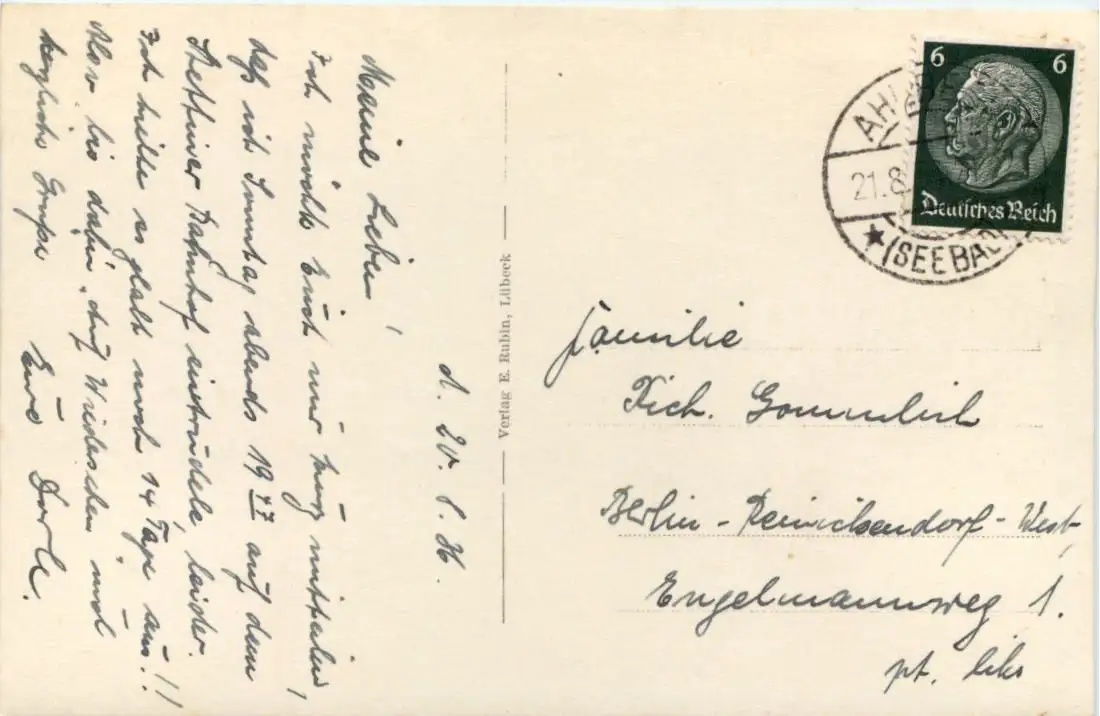 d. 20.8.36.
Meine Lieben!
Ich möchte Euch nur kurz mitteilen,
daß ich Sonntag abends 19 47 auf dem
Stettiner Bahnhof eintrudele, leider.
Ich hielte es glatt noch 14 Tage aus!!
Also bis dahin „auf Wiedersehen und
herzliche Grüße Eure Dorle.
Verlag E. Rubin, Lübeck
6 6
Deutsches Reich
AHLBECK
21.8
(SEEBAD)
Familie
Rich. Gommlich
Berlin - Reinickendorf - West,
Engelmannweg 1.
pt. lks